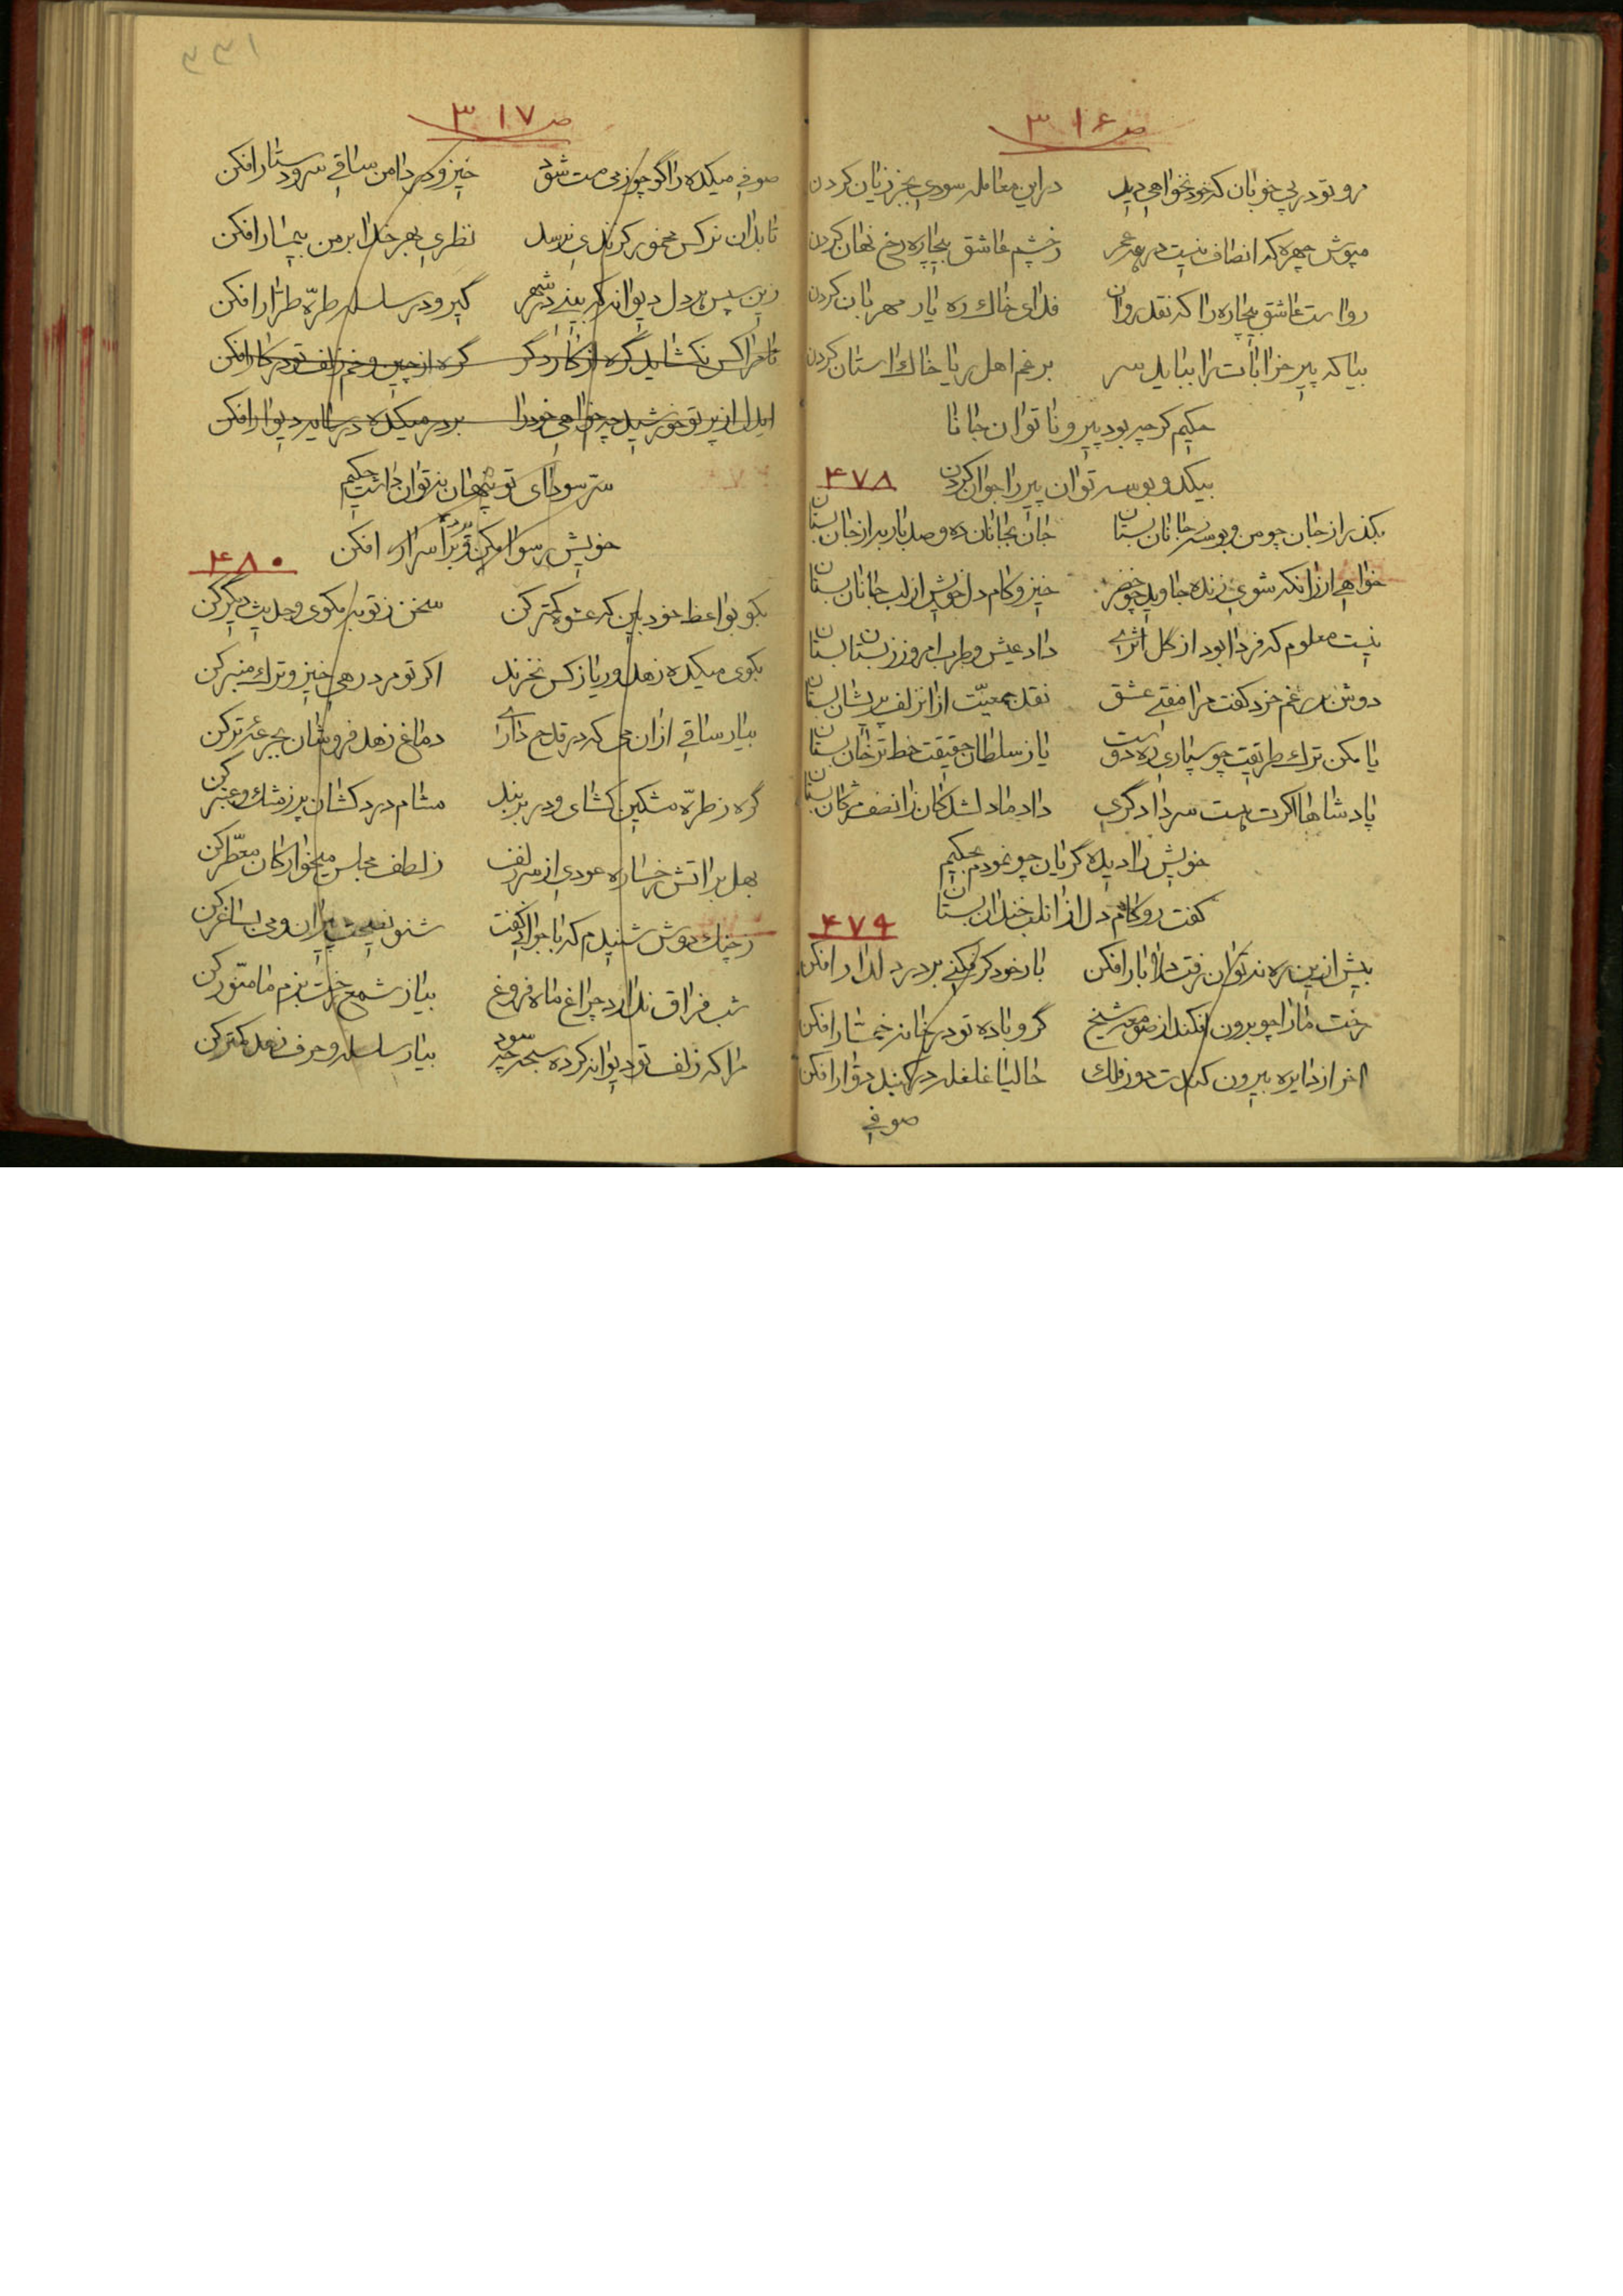 ص ۳۱۶
مرو تو در پی خوبان که خود نخواهی دید در این معامله سودی بجز زیان کردن
مپوش چهره که انصاف نیست در همه عمر ز چشم عاشق بیچاره رخ نهان کردن
رواست عاشق بیچاره را که نقد روان فدای خاک ره یار مهربان کردن
بیا که پیر خرابات را بباید سر برغم اهل ریا خاک استان کردن
حکیم کرچه بود پیر و ناتوان جانا
بیکدو بوسه توان پیر را جوان کردن
۴۷۸
بکذر از جان چو من و بوسه ز جانان بستان جان بجانان ده و صد بار به از جان بستان
خواهی ار زانکه شوی زنده جاوید چو خضر خیز و کام دل خویش از لب جانان بستان
نیست معلوم که فردا بود از کل اثری داد عیش و طرب امروز ز بستان بستان
دوش بر رغم خرد کفت مرا مفتی عشق نقد جمعیت از انزلف پریشان بستان
یا مکن ترک طریقت چو سپاری ره دوست یا ز سلطان حقیقت خط ترخان بستان
پادشاها اکرت هست سر دادگری داد ما دلشدکان زانصف مژکان بستان
خویش را دیده گریان چو نمودم بحکیم
کفت رو کام دل از انلب خندان بستان
۴۷۹
بیش ازین ره نتوان رفت دلا بار افکن بار خود کر فکنی بر در دلدار افکن
رخت ما را چو برون افکند از صومعه شیخ گرو باده تو در خانه خمار افکن
اخر از دایره بیرون کندت دور فلک حالیا غلغله در گنبد دوار افکن
صوفی
۳۳۱
ص ۳۱۷
صوفی میکده را گر چو ز می مست شود خیز و در دامن ساقی سر و دستار افکن
تا بدان نرکس مخمور کزندی نرسد نظری بهر خدا بر من بیمار افکن
زین سپس هر دل دیوانه که بینی در شهر گیر و در سلسله طره طرار افکن
تا مرا کس نکشاید گره از کار دگر گره از چین و خم زلف تو در کار افکن
ایدل از پرتو خورشید چه خواهی خود را بر در میکده در سایه دیوار افکن
سر سودای تو پنهان نتوان داشت حکیم
خویش رسوا کن و پرده ز اسرار افکن
۴۸۰
بکو بواعظ خودبین که عشوه کمتر کن سخن ز توبه مکوی و حدیث دیگر کن
بکوی میکده زهد و ریا ز کس نخرند اکر تو مرد رهی خیز و ترک منبر کن
بیار ساقی از ان می که در قدح داری دماغ زهد فروشان بجرعهٔ تر کن
گره ز طره مشکین کشای و در بر بند مشام دردکشان پر ز مشک و عنبر کن
بهل بر اتش رخساره عودی از سر زلف ز لطف مجلس میخوارکان معطر کن
ز چنک دوش شنیدم که با جوانی کفت شنو نصیحت پیران و می بساغر کن
شب فراق ندارد چراغ ماه فروغ بیا ز شمع رخت بزم ما منور کن
مرا که زلف تو دیوانه کرده سبحه چه سود بیار سلسله و حرف زهد کمتر کن